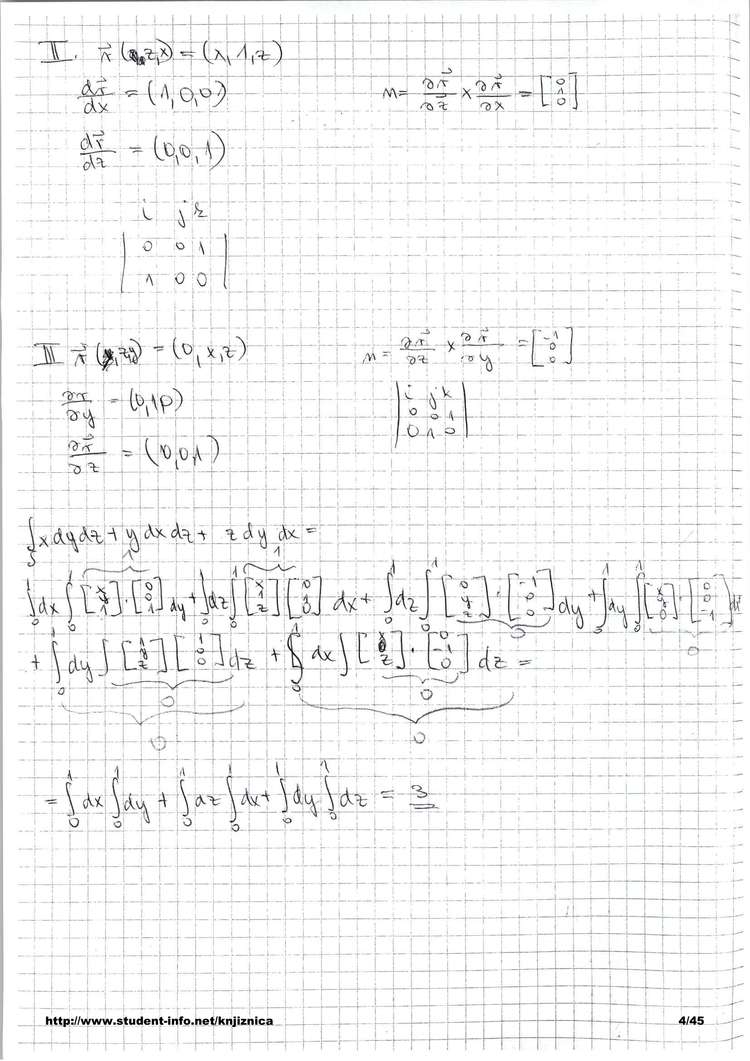 II. r⃗(z,x) = (x,1,z)
dr⃗/dx = (1,0,0)  n = ∂r⃗/∂z × ∂r⃗/∂x = [0 1 0]
dr⃗/dz = (0,0,1)
i j k
| 0 0 1 |
| 1 0 0 |
III r⃗( ,z,y) = (0,x,z)  n = ∂r⃗/∂z × ∂r⃗/∂y = [-1 0 0]
∂r/∂y = (0,1,0)  | i j k |
| 0 0 1 |
∂r⃗/∂z = (0,0,1)  | 0 1 0 |
∫_S x dy dz + y dx dz + z dy dx =
1 1
∫₀¹ dx ∫₀¹ [x y 1]·[0 0 1] dy + ∫₀¹ dz ∫₀¹ [x 1 z][0 1 0] dx + ∫₀¹ dz ∫₀¹ [0 y z]·[-1 0 0] dy + ∫₀¹ dy ∫₀¹ [x y 0]·[0 0 -1] dx
0 0
+ ∫₀¹ dy ∫ [1 y z][1 0 0] dz + ∫₀¹ dx ∫ [x 0 z]·[0 -1 0] dz =
0 0
0 0
= ∫₀¹ dx ∫₀¹ dy + ∫₀¹ dz ∫₀¹ dx + ∫₀¹ dy ∫₀¹ dz = 3
http://www.student-info.net/knjiznica 4/45